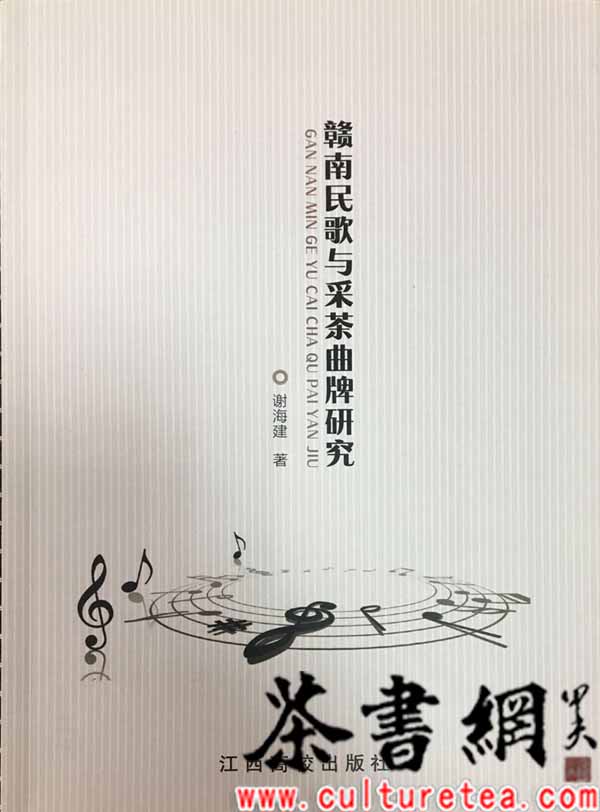 赣南民歌与采茶曲牌研究
GAN NAN MIN GE YU CAI CHA QU PAI YAN JIU
谢海建 著
江西高校出版社
茶書網
www.culturetea.com